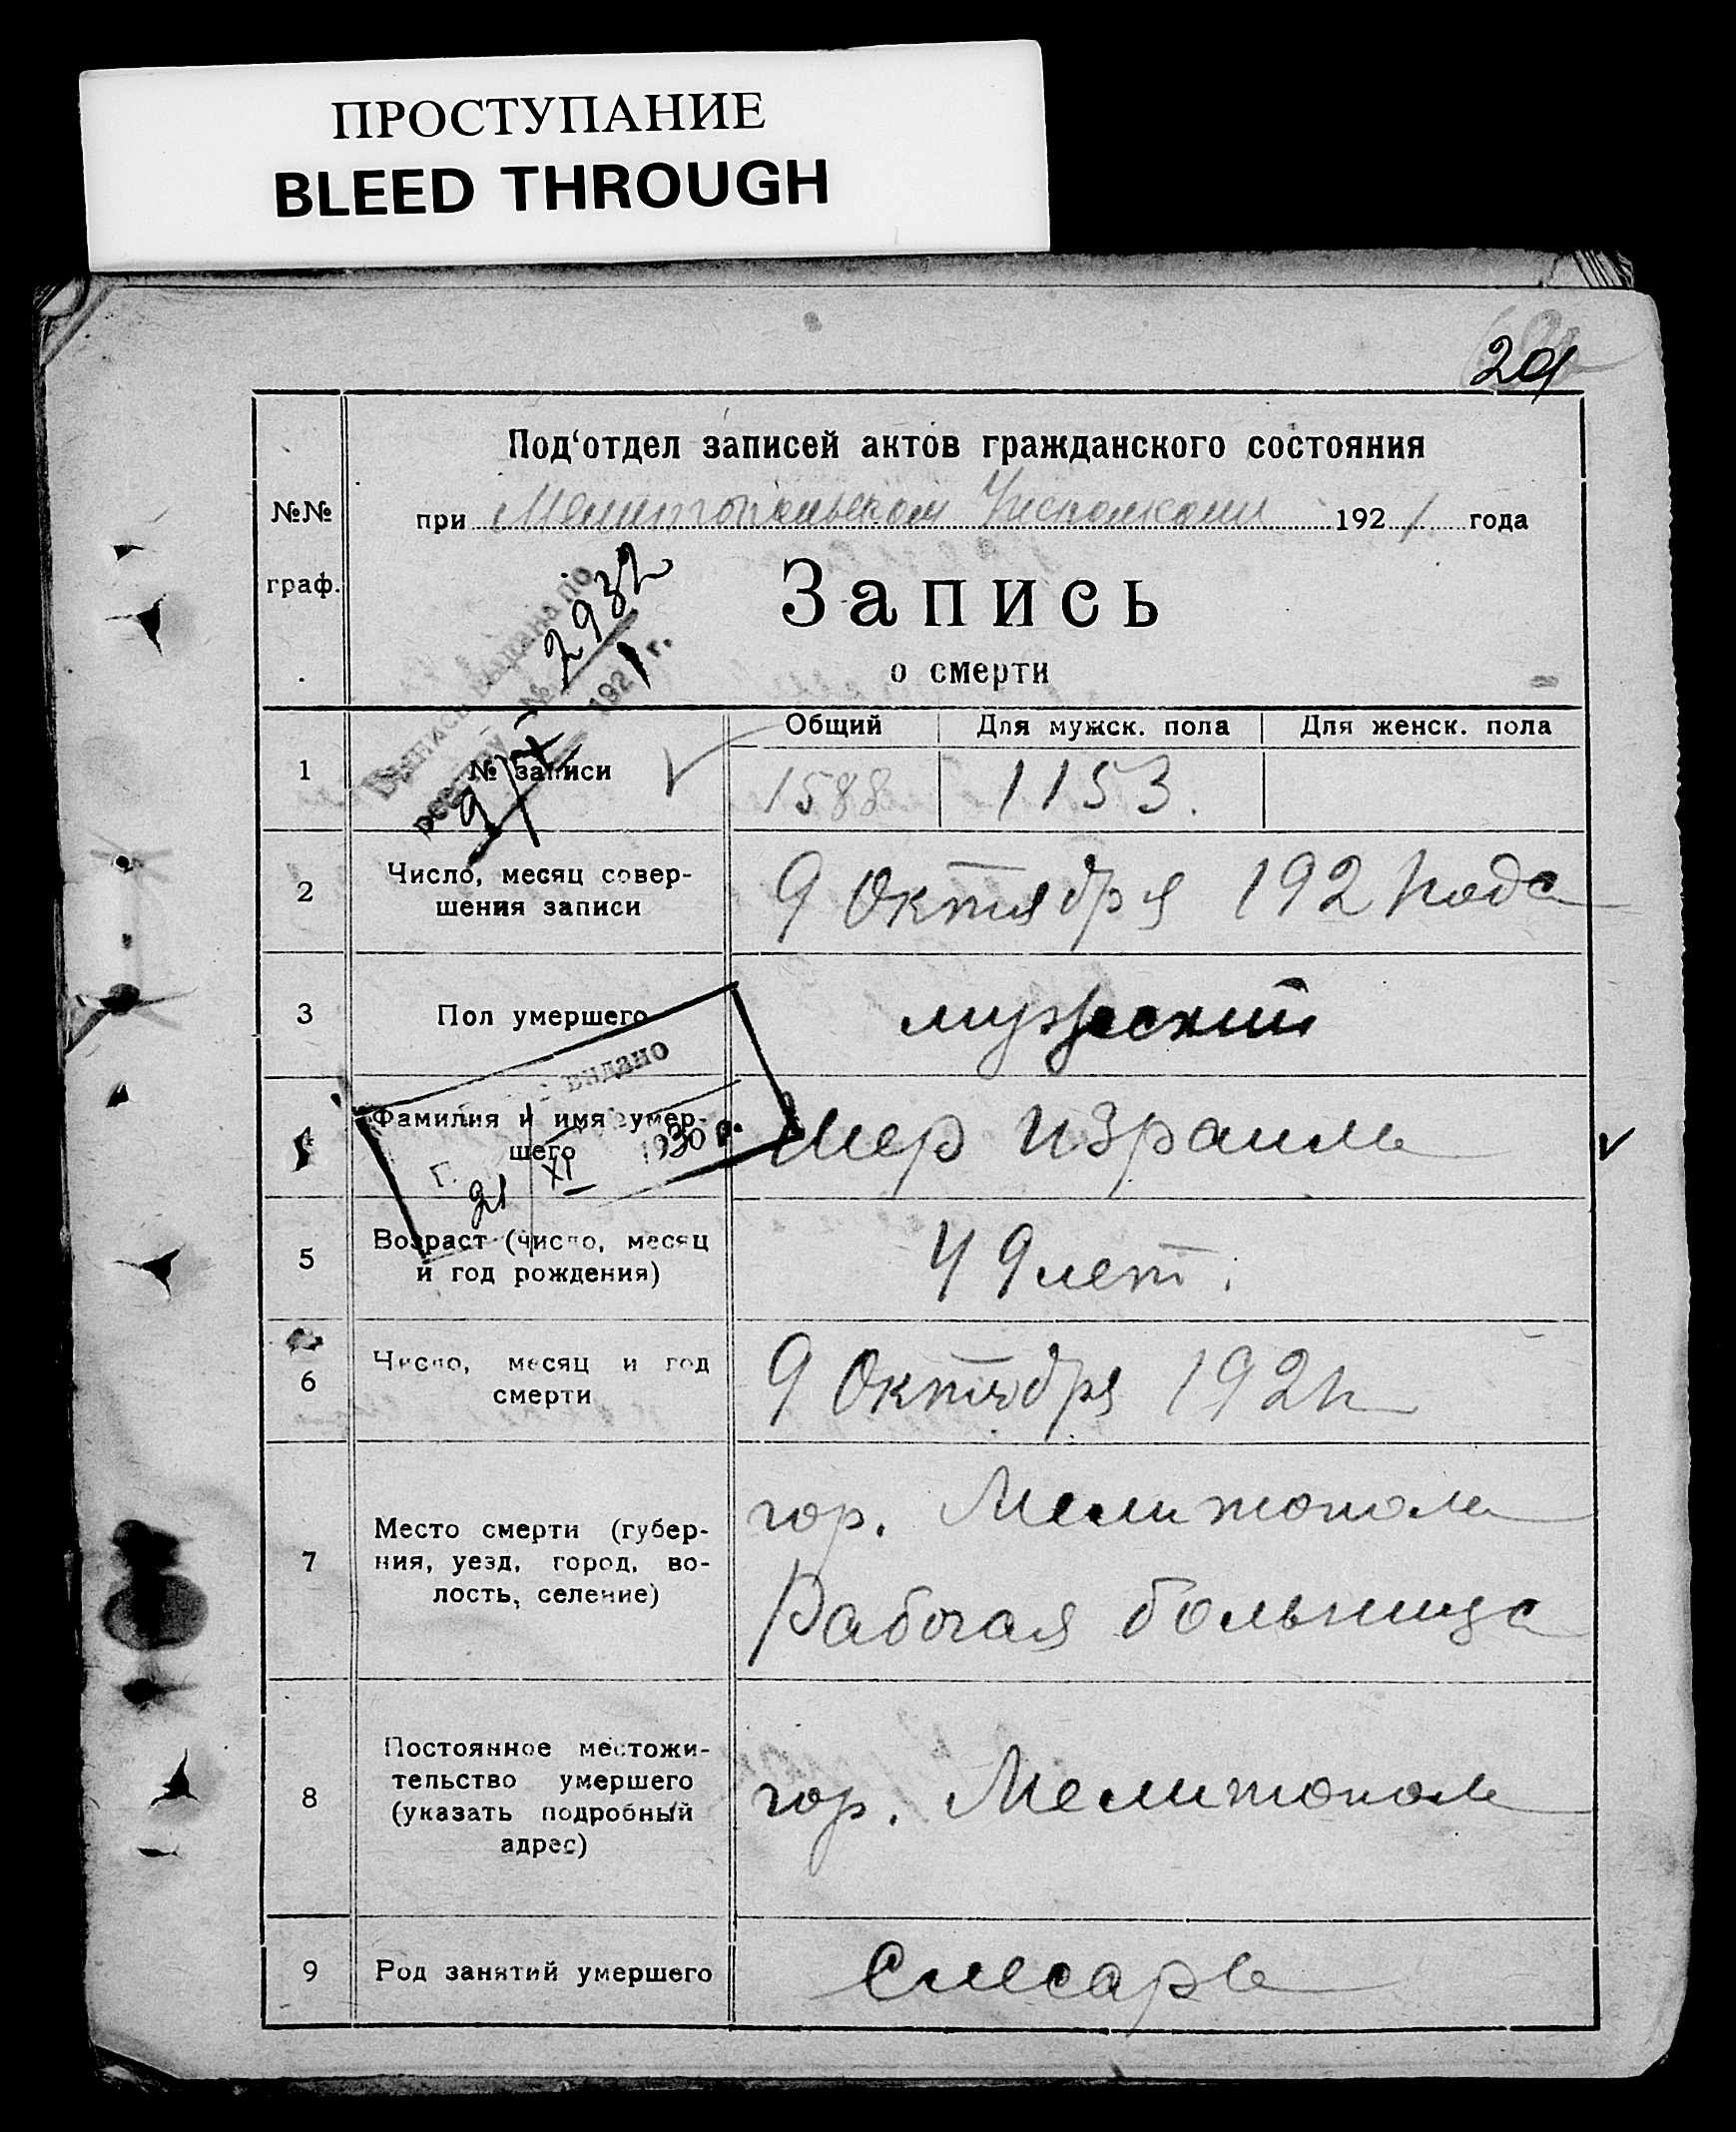 ПРОСТУПАНИЕ
BLEED THROUGH
201
Под‘отдел записей актов гражданского состояния
№№ граф.
при Мелитопольском Уисполкоми 1921 года
Запись
о смерти
Выпись выдана по
реестру № 2932
9/X 1921 г.
Общий Для мужск. пола Для женск. пола
1 № записи 1588 1153.
2 Число, месяц совер-
шения записи 9 Октября 1921 года
3 Пол умершего мужеский
видано
21 XI 1930 р.
4 Фамилия и имя умер-
шего Мер Израиль
5 Возраст (число, месяц
и год рождения) 49 лет.
6 Число, месяц и год
смерти 9 Октября 1921 г
7 Место смерти (губер-
ния, уезд, город, во-
лость, селение) гор. Мелитополь
Рабочая больница
8 Постоянное местожи-
тельство умершего
(указать подробный
адрес) гор. Мелитополь
9 Род занятий умершего Слесарь